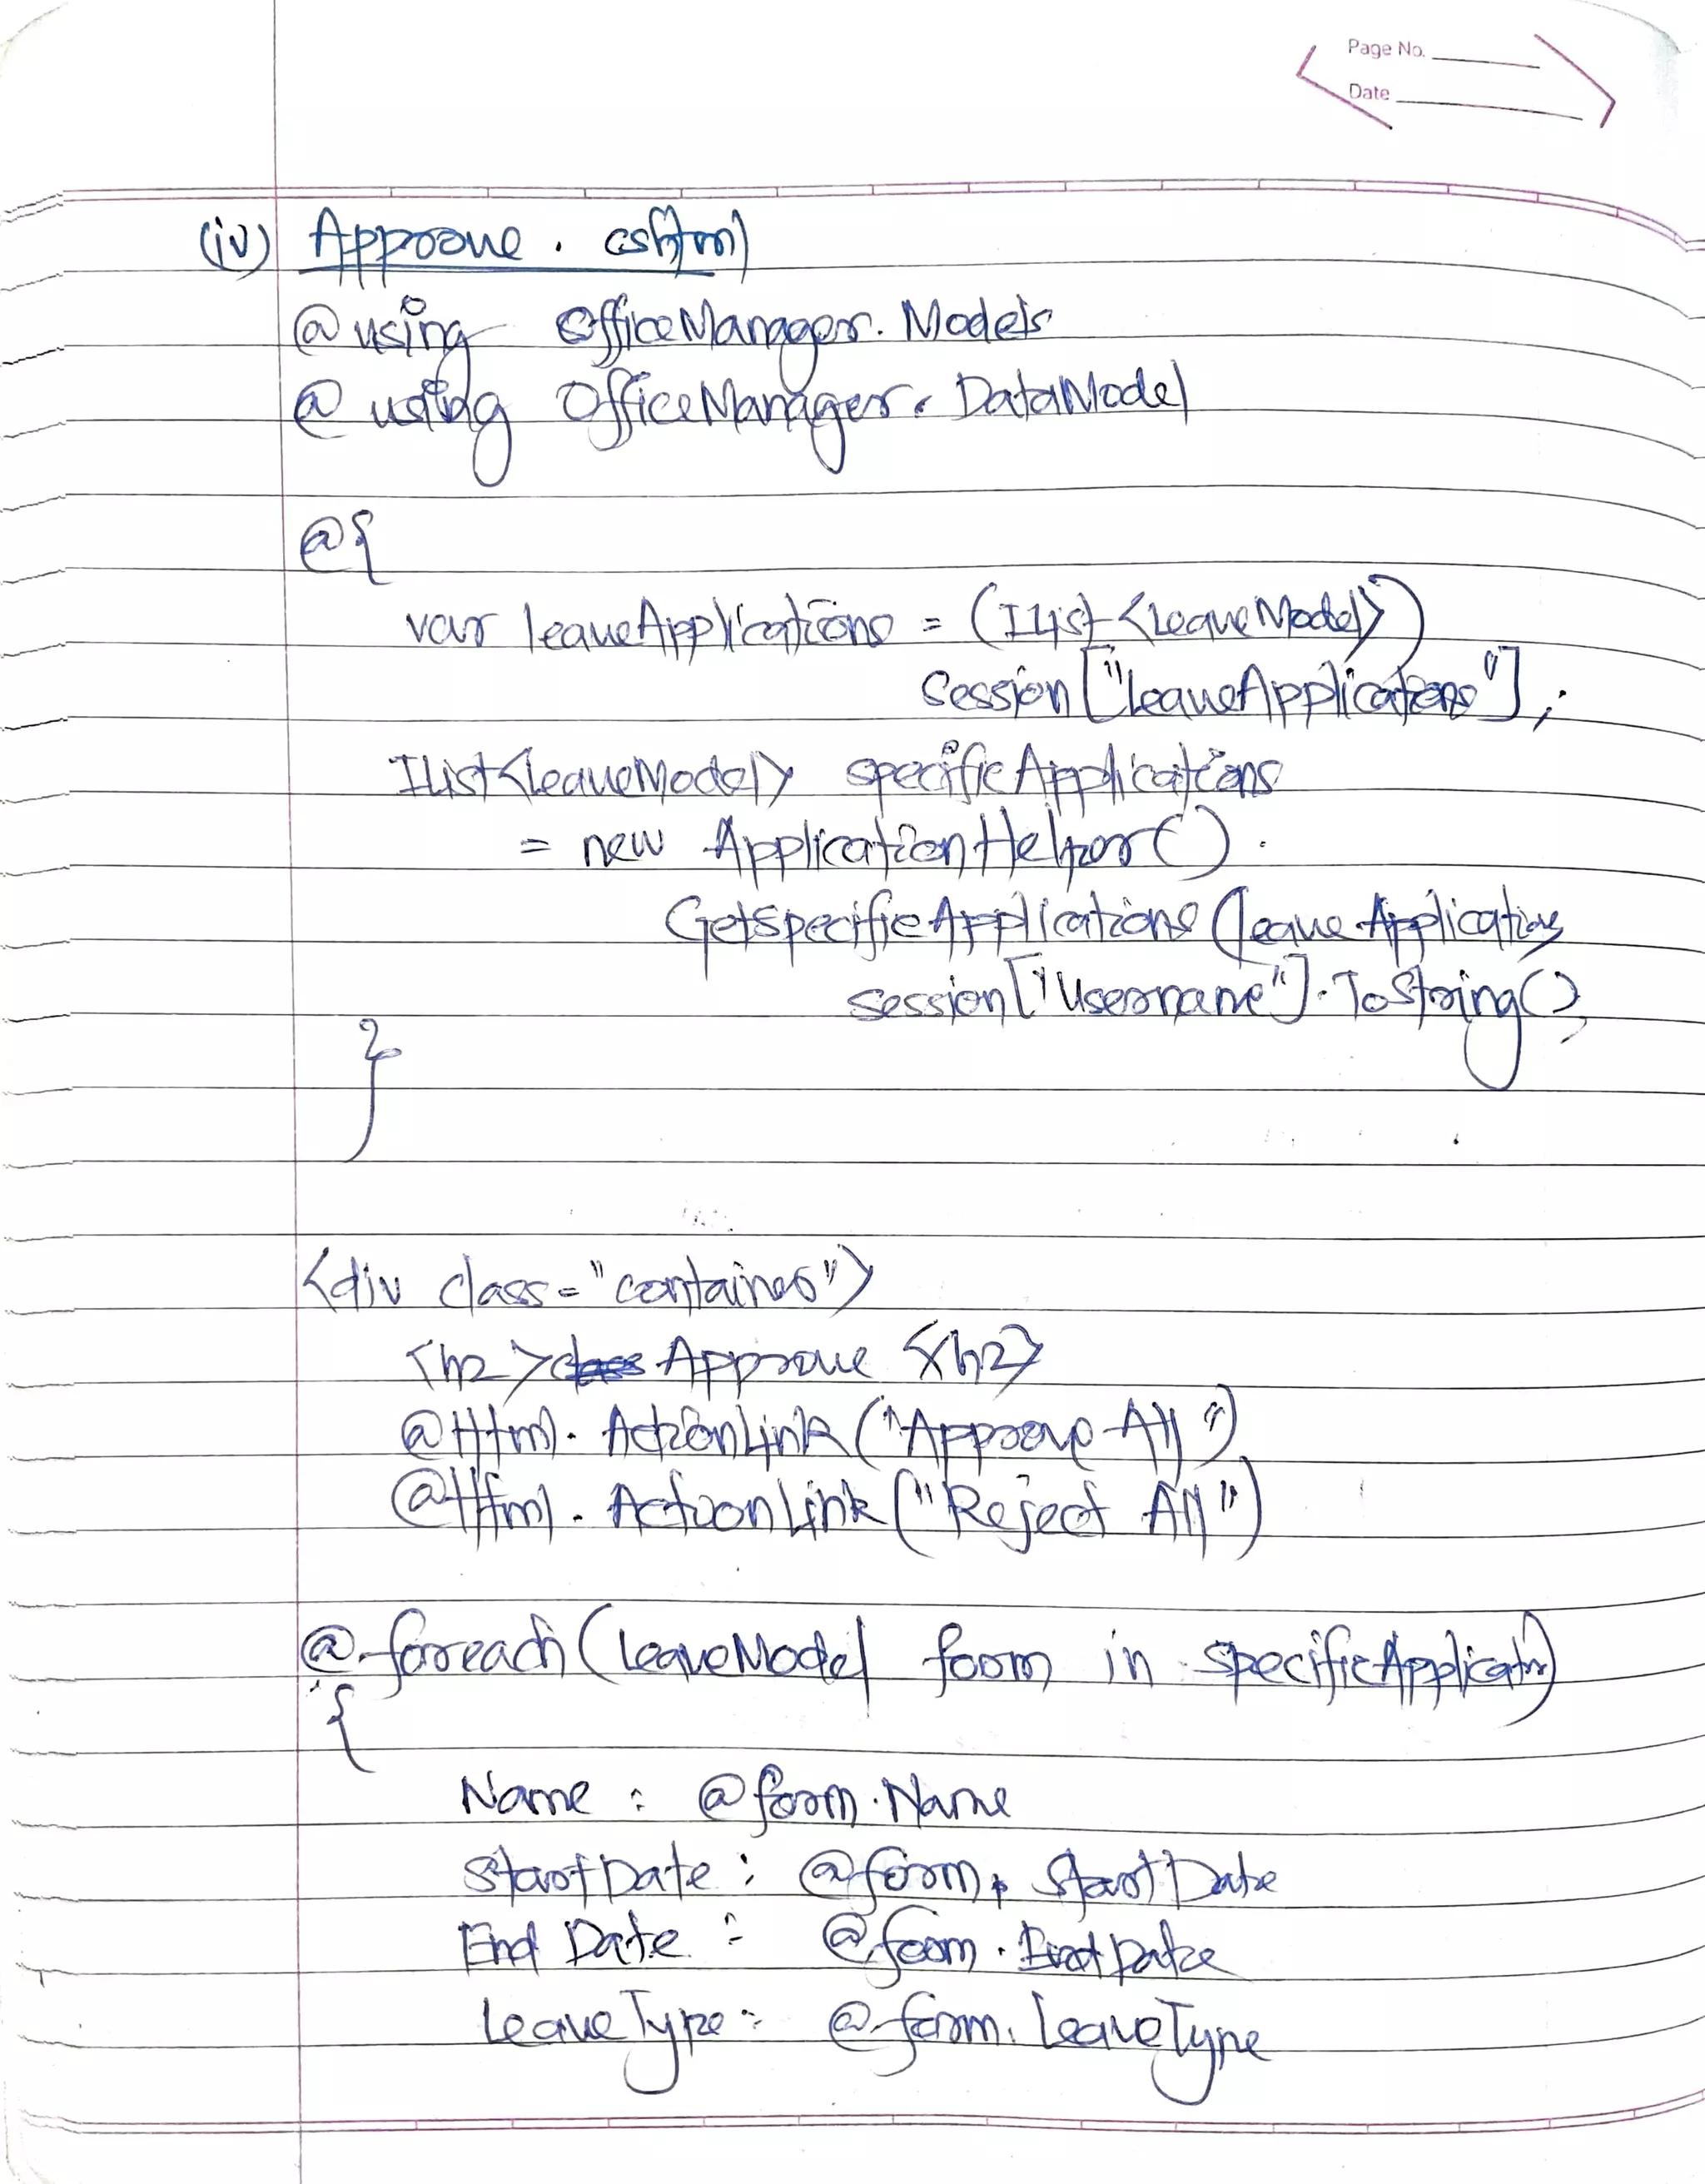 Page No.
Date
(iv) Approve . cshtml
@ using OfficeManager. Models
@ using OfficeManager. DataModel
@{
var leaveApplications = (IList <LeaveModel>)
Session ["LeaveApplications"] ;
IList<leaveModel> specificApplications
= new ApplicationHelper() .
GetspecificApplications (leave Applications
session["Username"].ToString();
}
<div class="container">
<h2> Approve </h2>
@Html. ActionLink("Approve All")
@Html. ActionLink("Reject All")
@foreach(LeaveModel form in specificApplication)
{
Name : @form.Name
StartDate : @form. StartDate
End Date : @form. EndDate
LeaveType : @form. LeaveType